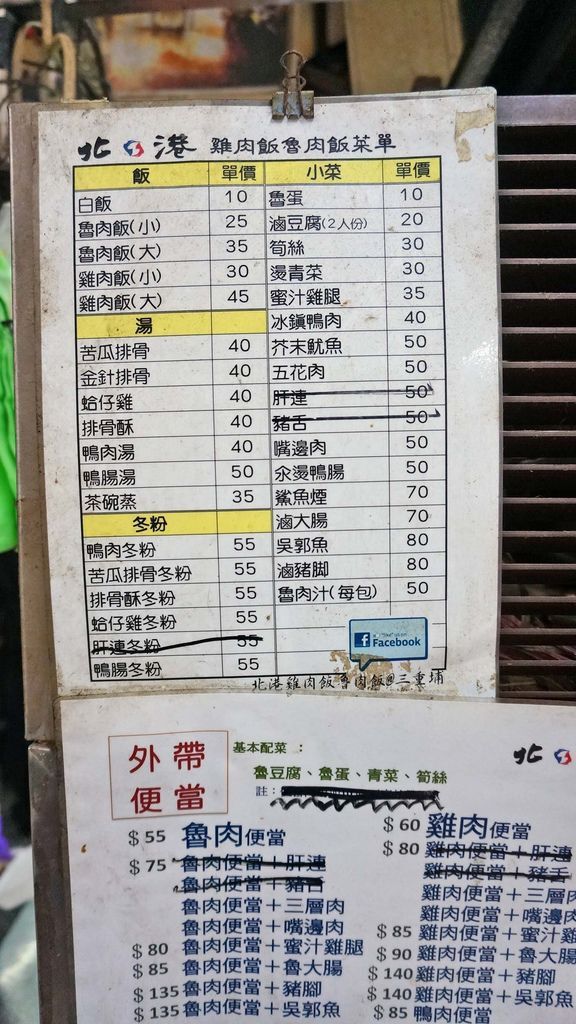 北港 雞肉飯魯肉飯菜單
飯 單價 小菜 單價
白飯 10 魯蛋 10
魯肉飯(小) 25 滷豆腐(2人份) 20
魯肉飯(大) 35 筍絲 30
雞肉飯(小) 30 燙青菜 30
雞肉飯(大) 45 蜜汁雞腿 35
湯 冰鎮鴨肉 40
苦瓜排骨 40 芥末魷魚 50
金針排骨 40 五花肉 50
蛤仔雞 40 肝連 50
排骨酥 40 豬舌 50
鴨肉湯 40 嘴邊肉 50
鴨腸湯 50 汆燙鴨腸 50
茶碗蒸 35 鯊魚煙 70
冬粉 滷大腸 70
鴨肉冬粉 55 吳郭魚 80
苦瓜排骨冬粉 55 滷豬腳 80
排骨酥冬粉 55 魯肉汁(每包) 50
蛤仔雞冬粉 55
肝連冬粉 55
鴨腸冬粉 55
Facebook
北港雞肉飯魯肉飯@三重埔
外帶
便當
基本配菜：
魯豆腐、魯蛋、青菜、筍絲
註：
北
$55 魯肉便當 $60 雞肉便當
$75 魯肉便當+肝連 $80 雞肉便當+肝連
魯肉便當+豬舌 雞肉便當+豬舌
魯肉便當+三層肉 雞肉便當+三層
魯肉便當+嘴邊肉 雞肉便當+嘴邊
$80 魯肉便當+蜜汁雞腿 $85 雞肉便當+蜜汁
$85 魯肉便當+魯大腸 $90 雞肉便當+魯大
$135 魯肉便當+豬腳 $140 雞肉便當+豬腳
$135 魯肉便當+吳郭魚 $140 雞肉便當+吳郭
$85 鴨肉便當